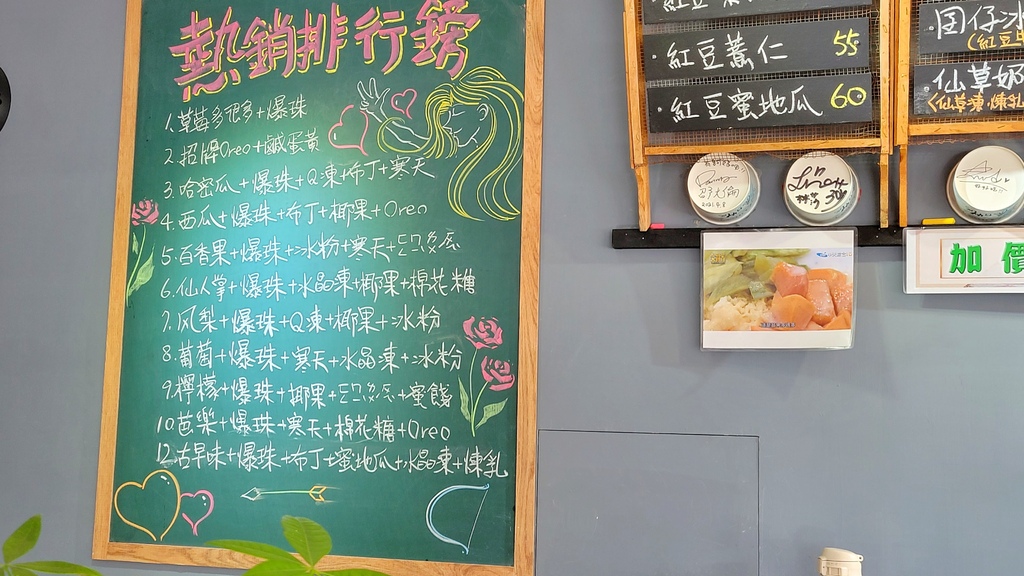 熱銷排行榜
1.草莓多很多+爆珠
2.招牌Oreo+鹹蛋黃
3.哈密瓜+爆珠+Q凍+布丁+寒天
4.西瓜+爆珠+布丁+椰果+Oreo
5.百香果+爆珠+冰粉+寒天+
6.仙人掌+爆珠+水晶凍+椰果+棉花糖
7.风梨+爆珠+Q凍+椰果+冰粉
8.葡萄+爆珠+寒天+水晶凍+冰粉
9.檸檬+爆珠+椰果+蜜餞
10.芭樂+爆珠+寒天+棉花糖+Oreo
12.古早味+爆珠+布丁+蜜地瓜+水晶凍+煉乳
·紅豆薏仁 55
·紅豆蜜地瓜 60
·囝仔冰
(紅豆
·仙草奶
(仙草凍,煉乳
加價